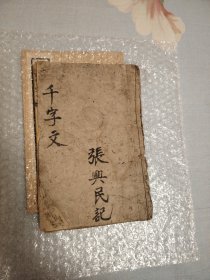 千字文
張興民記